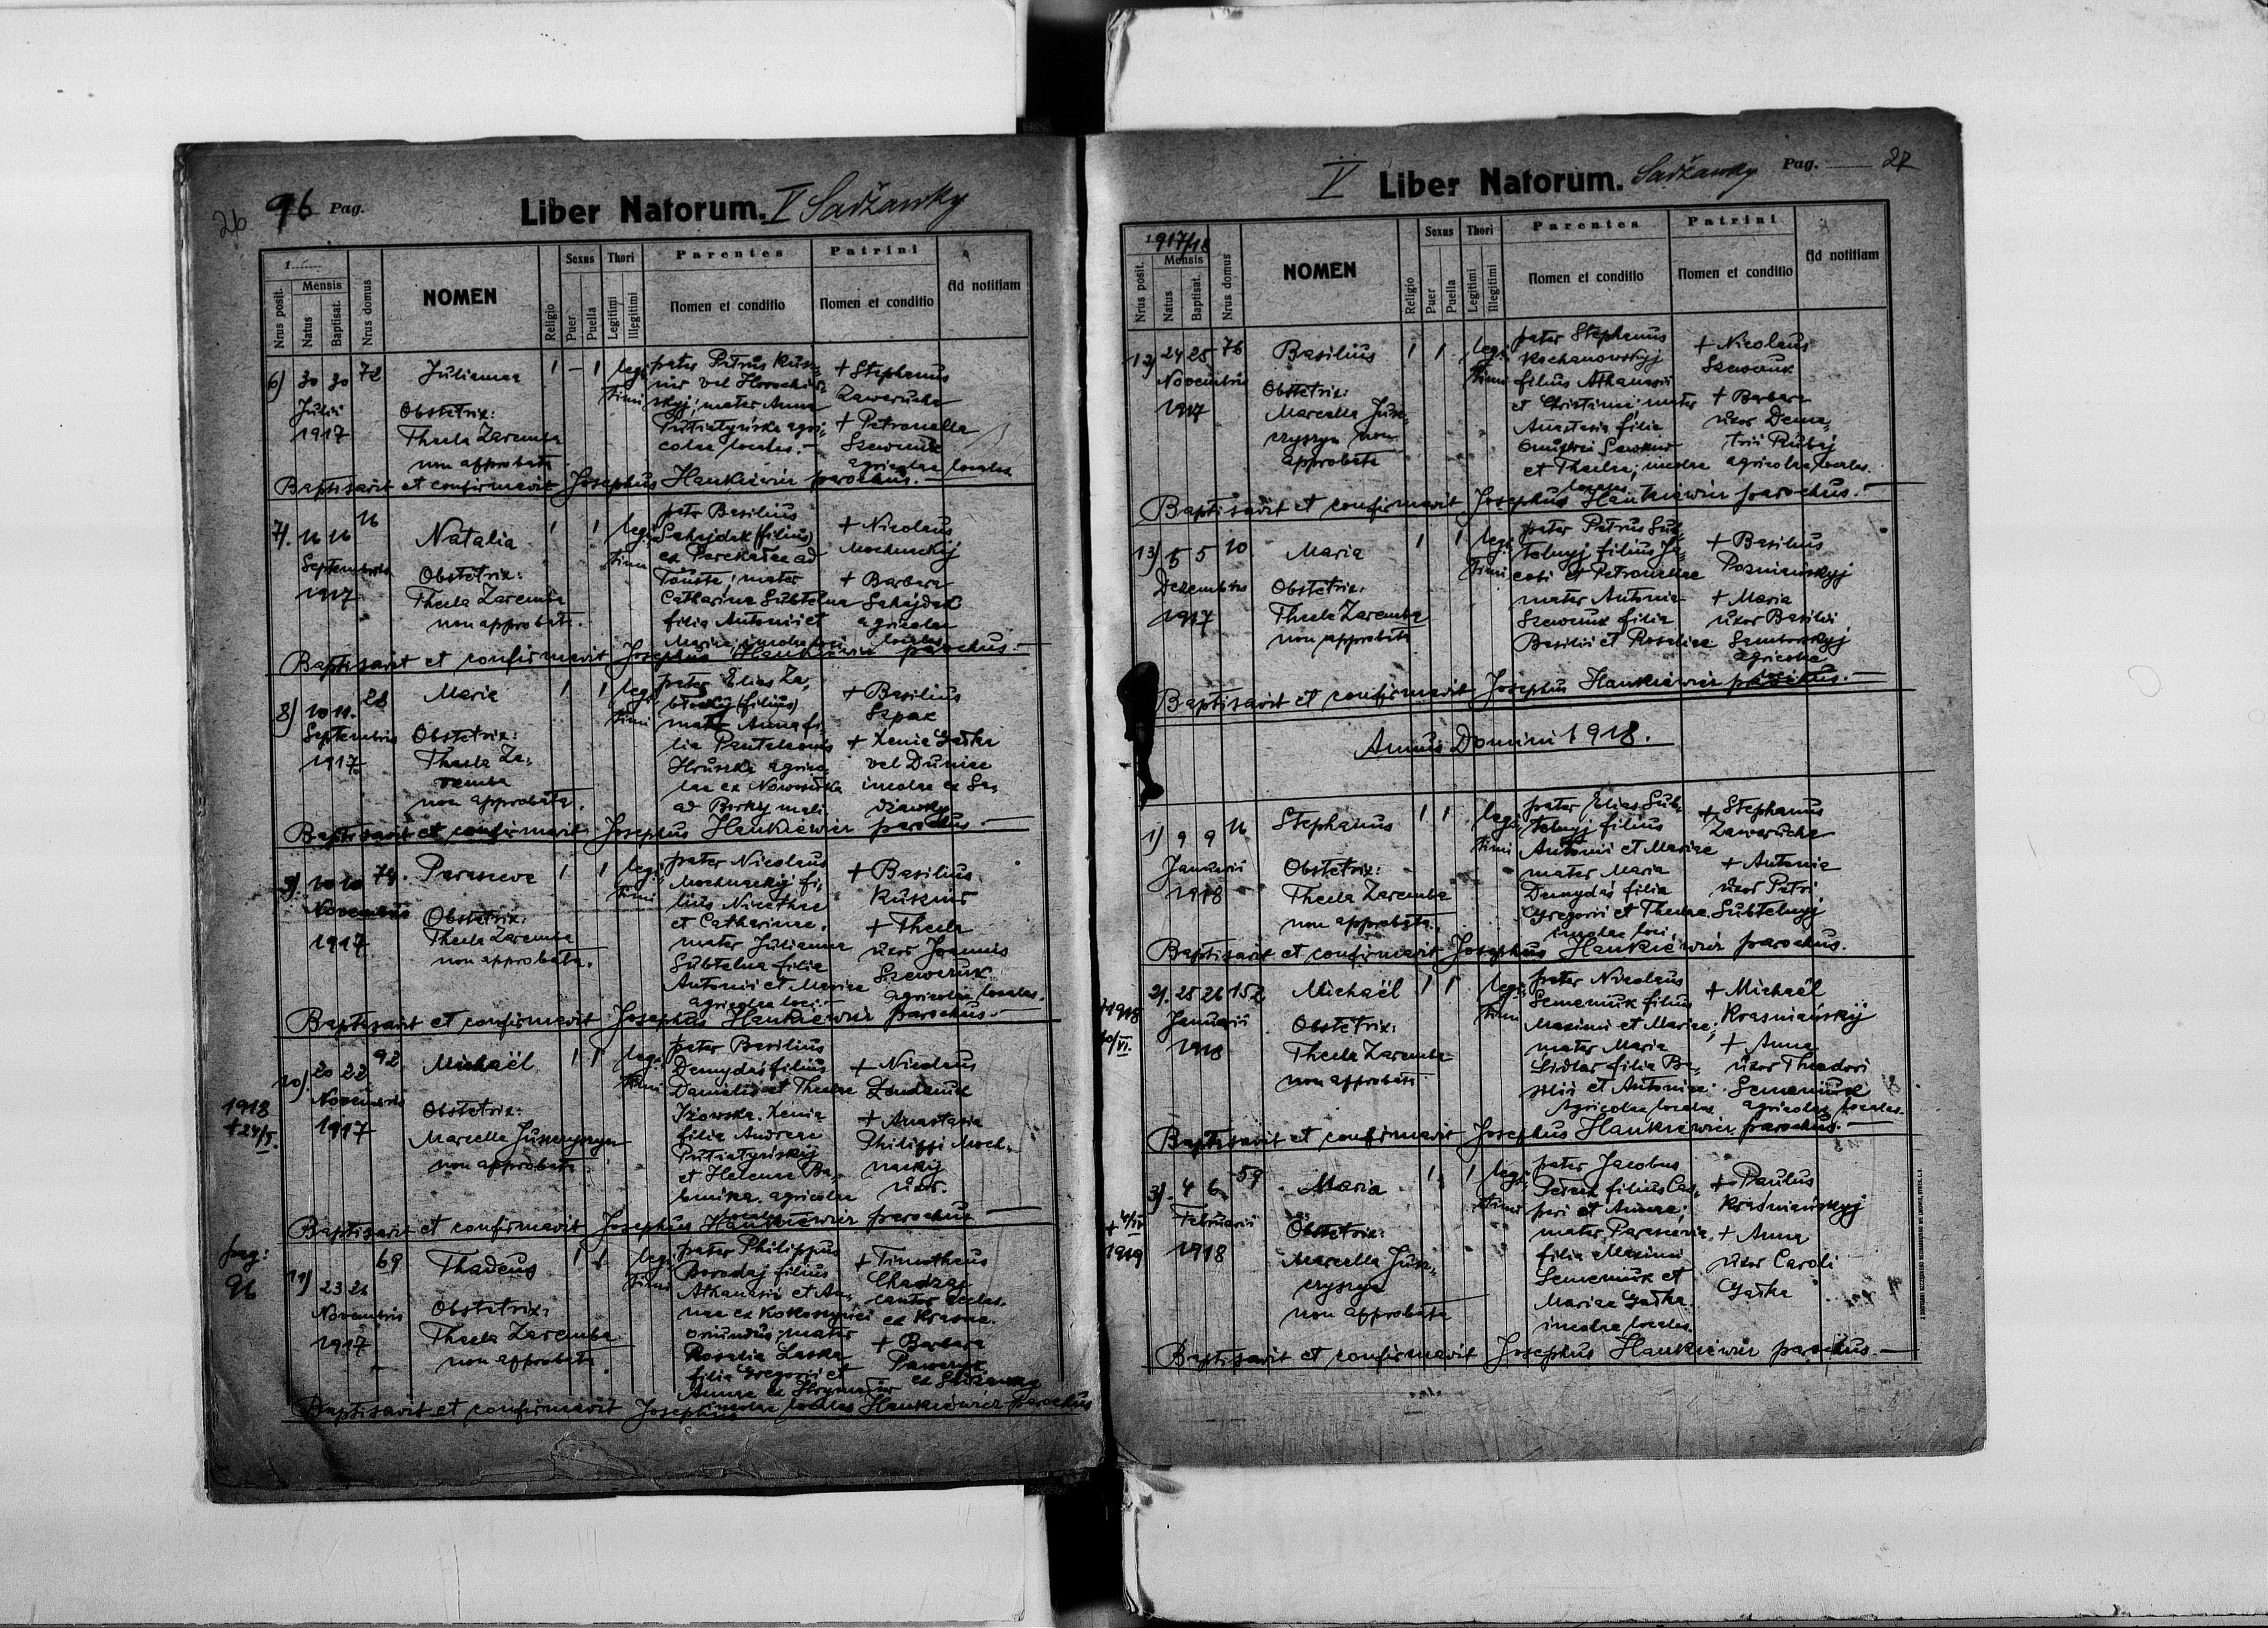 26 96 Pag.
Liber Natorum. V Sadžawky
1
Nrus posit.
Mensis
Natus
Baptisat.
Nrus domus
NOMEN
Religio
Sexus
Puer
Puella
Thori
Legitimi
Illegitimi
Parentes
Nomen et conditio
Patrini
Nomen et conditio
Ad notitiam
6) 30 30 72 Julianna 1 – 1 legi
timi
Julii
1917
Obstetrix:
Thecla Zaremba
non approbata
pater Petrus Kuś
nir vel Horochiw
skyj; mater Anna
Putiatyńska agri
colae locales. –
+ Stephanus
Zawerucha
+ Petronella
Szewczuk
agricolae locales
Baptisavit et confirmavit Josephus Hankiewicz parochus. –
7). 16 16 16 Natalia 1 1 legi
timi
Septembris
1917
Obstetrix:
Thecla Zaremba
non approbata.
pater Basilius
Sahajdak (filius)
ex Parekałce ad
Touste; mater
Catharina Subtelna
filia Antonii et
Mariae; incolae loci
+ Nicolaus
Mochnackij
+ Barbara
Sahajdak
agricolae
locales
Baptisavit et confirmavit Josephus Hankiewicz parochus. –
8) 10 11. 28 Maria 1 1 legi
timi
Septembris
1917
Obstetrix:
Thecla Za,
remba
non approbata.
pater Elias Za,
błockij (filius)
mater Anna fi,
lia Pantaleonis
Hruszka agrico,
lae ex Nowosiłka
ad Borky mali
+ Basilius
Szpak
+ Xenia Gałka
vel Duniec
incolae ex Sa,
dżawky
Baptisavit et confirmavit Josephus Hankiewicz parochus. –
9) 10 10 79. Parasceve 1 1 legi
timi
Novembris
1917
Obstetrix:
Thecla Zaremba
non approbata.
pater Nicolaus
Mochnackij fi,
lius Nicethae
et Catharinae.
mater Julianna
Subtelna filia
Antonii et Mariae
agricolae loci. –
+ Basilius
Kuśznir
+ Thecla
uxor Joannis
Szewczuk
agricolae locales.
Baptisavit et confirmavit Josephus Hankiewicz parochus. –
10). 20 22 92 Michaël 1 1 legi
timi
Novembris
1917
1918
+ 24/I.
Obstetrix:
Marcella Juszczyszyn
non approbata
pater Basilius
Demydaś filius
Danielis et Theclae
Iżowska. Xenia
filia Andreae
Putiatyńskij
et Helenae Ba,
agricolae
locales
+ Nicolaus
+ Anastasia
Philippi Moch,
nackij
uxor.
Baptisavit et confirmavit Josephus Hankiewicz parochus –
pag:
96
11) 23 26 69 Thadeus 1 1 legi
timi
Novembris
1917
Obstetrix:
Thecla Zaremba
non approbata
pater Philippus
Borodaj filius
Athanasii et An,
nae ex
oriundus; mater
Rosalia Laska
filia Gregorii et
Annae ex Hrymałiw
incolae locales
+ Timotheus
Chadzaj
cantor eccles.
ex Krasne.
+ Barbara
ex Sadżawky
Baptisavit et confirmavit Josephus Hankiewicz parochus
V Liber Natorum. Sadžawky Pag. 27
1917/18
Nrus posit.
Mensis
Natus
Baptisat.
Nrus domus
NOMEN
Religio
Sexus
Puer
Puella
Thori
Legitimi
Illegitimi
Parentes
Nomen et conditio
Patrini
Nomen et conditio
Ad notitiam
12) 24 25 76 Basilius 1 1 legi
timi
Novembris
1917
Obstetrix:
Marcella Jusz,
czyszyn non
approbata
pater Stephanus
Kochanowskyj
filius Athanasii
et Christinae; mater
Anastasia filia
et Theclae; incolae
locales
+ Nicolaus
Szewczuk
+ Barbara
uxor Deme,
trii Rubaj
agricolae locales.
Baptisavit et confirmavit Josephus Hankiewicz parochus. –
13) 5 5 10 Maria 1 1 legi
timi
Dezembris
1917
Obstetrix:
Thecla Zaremba
non approbata
pater Petrus Sub,
telnyj filius Ja,
cobi et Petronellae
mater Antonia
Szewczuk filia
Basilii et Rosaliae
+ Basilius
Pozniańskyj
+ Maria
uxor Basilii
Samborskyj
agricolae
loci
Baptisavit et confirmavit Josephus Hankiewicz parochus. –
Annus Domini 1918.
1) 9 9 16 Stephanus 1 1 legi
timi
Januarii
1918
Obstetrix:
Thecla Zaremba
non approbata.
pater Elias Sub,
telnyj filius
Antonii et Mariae
mater Maria
Demydaś filia
Gregorii et Theclae
incolae loci.
+ Stephanus
Zawerucha
+ Antonia
uxor Petri
Subtelnyj
Baptisavit et confirmavit Josephus Hankiewicz parochus.
2). 25 26 152 Michaël 1 1 legi
timi
Januarii
1918
+1918
10/VI.
Obstetrix:
Thecla Zaremba
non approbata
pater Nicolaus
Semeniuk filius
Maximi et Mariae;
mater Maria
Sidlar filia Ba,
silii et Antoniae.
Agricolae locales
+ Michaël
Krasniańskij
+ Anna
uxor Theodori
Semeniuk
agricolae locales.
Baptisavit et confirmavit Josephus Hankiewicz parochus. –
3). 4 6 59 Maria 1 1 legi
timi
Februarii
1918
+ 4/IV
1919
Obstetrix:
Marcella Jusz,
czyszyn
non approbata
pater Jacobus
filius Cas,
pari et Annae;
mater Parascevia
filia Maximi
Semeniuk et
Mariae Gałka.
incolae locales.
+ Paulus
Kraśniańskyj
+ Anna
uxor Caroli
Gałka
Baptisavit et confirmavit Josephus Hankiewicz parochus. –